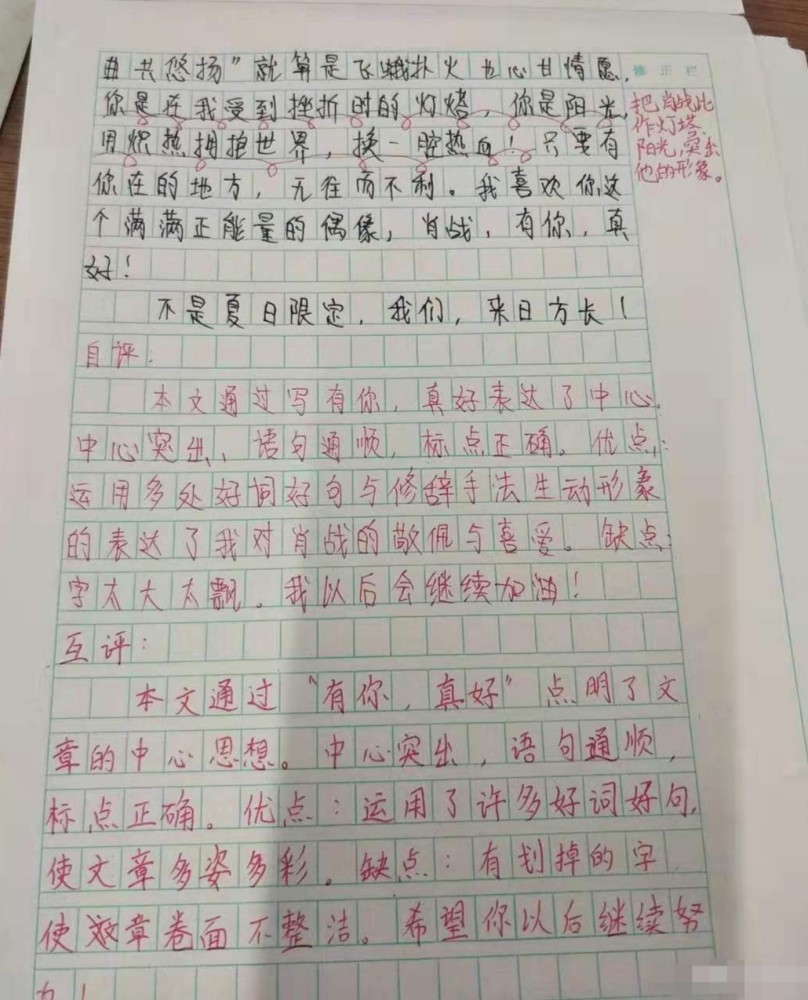 曲共悠扬”就算是飞蛾扑火也心甘情愿，
你是在我受到挫折时的灯塔，你是阳光，
用炽热拥抱世界，换一腔热血！只要有
你在的地方，无往而不利。我喜欢你这
个满满正能量的偶像，肖战，有你，真
好！
不是夏日限定，我们，来日方长！
修正栏
把肖战比
作灯塔，
阳光，突出
他的形象。
自评：
本文通过写有你，真好表达了中心，
中心突出，语句通顺，标点正确。优点：
运用多处好词好句与修辞手法生动形象
的表达了我对肖战的敬佩与喜爱。缺点：
字太大太飘。我以后会继续加油！
互评：
本文通过“有你，真好”点明了文
章的中心思想。中心突出，语句通顺，
标点正确。优点：运用了许多好词好句，
使文章多姿多彩。缺点：有划掉的字
使文章卷面不整洁。希望你以后继续努
力！